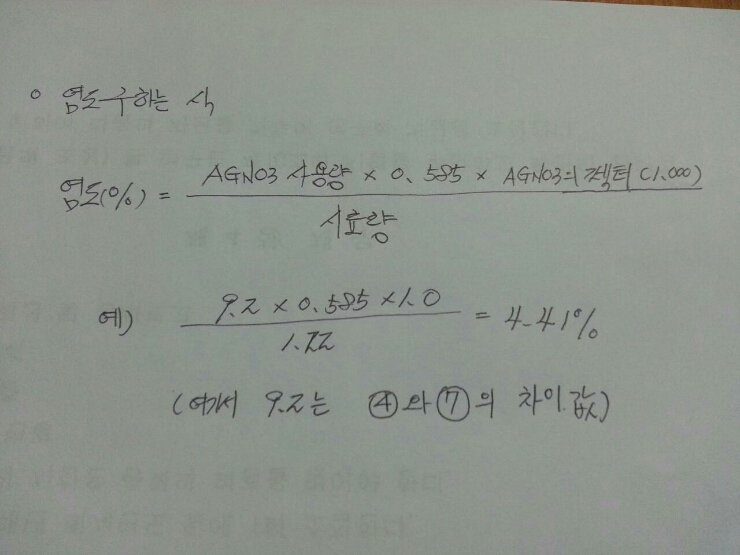 ○ 염도구하는 식
염도(%) = AGNO3 사용량 × 0.585 × AGNO3의 펙터 (1.000)
시료량
예) 9.2 × 0.585 × 1.0 = 4.41%
1.22
(여기서 9.2는 ④와 ⑦의 차이값)